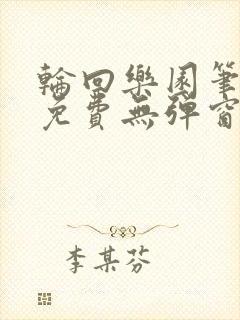 輪回樂園筆
免費無彈窗
李某芬